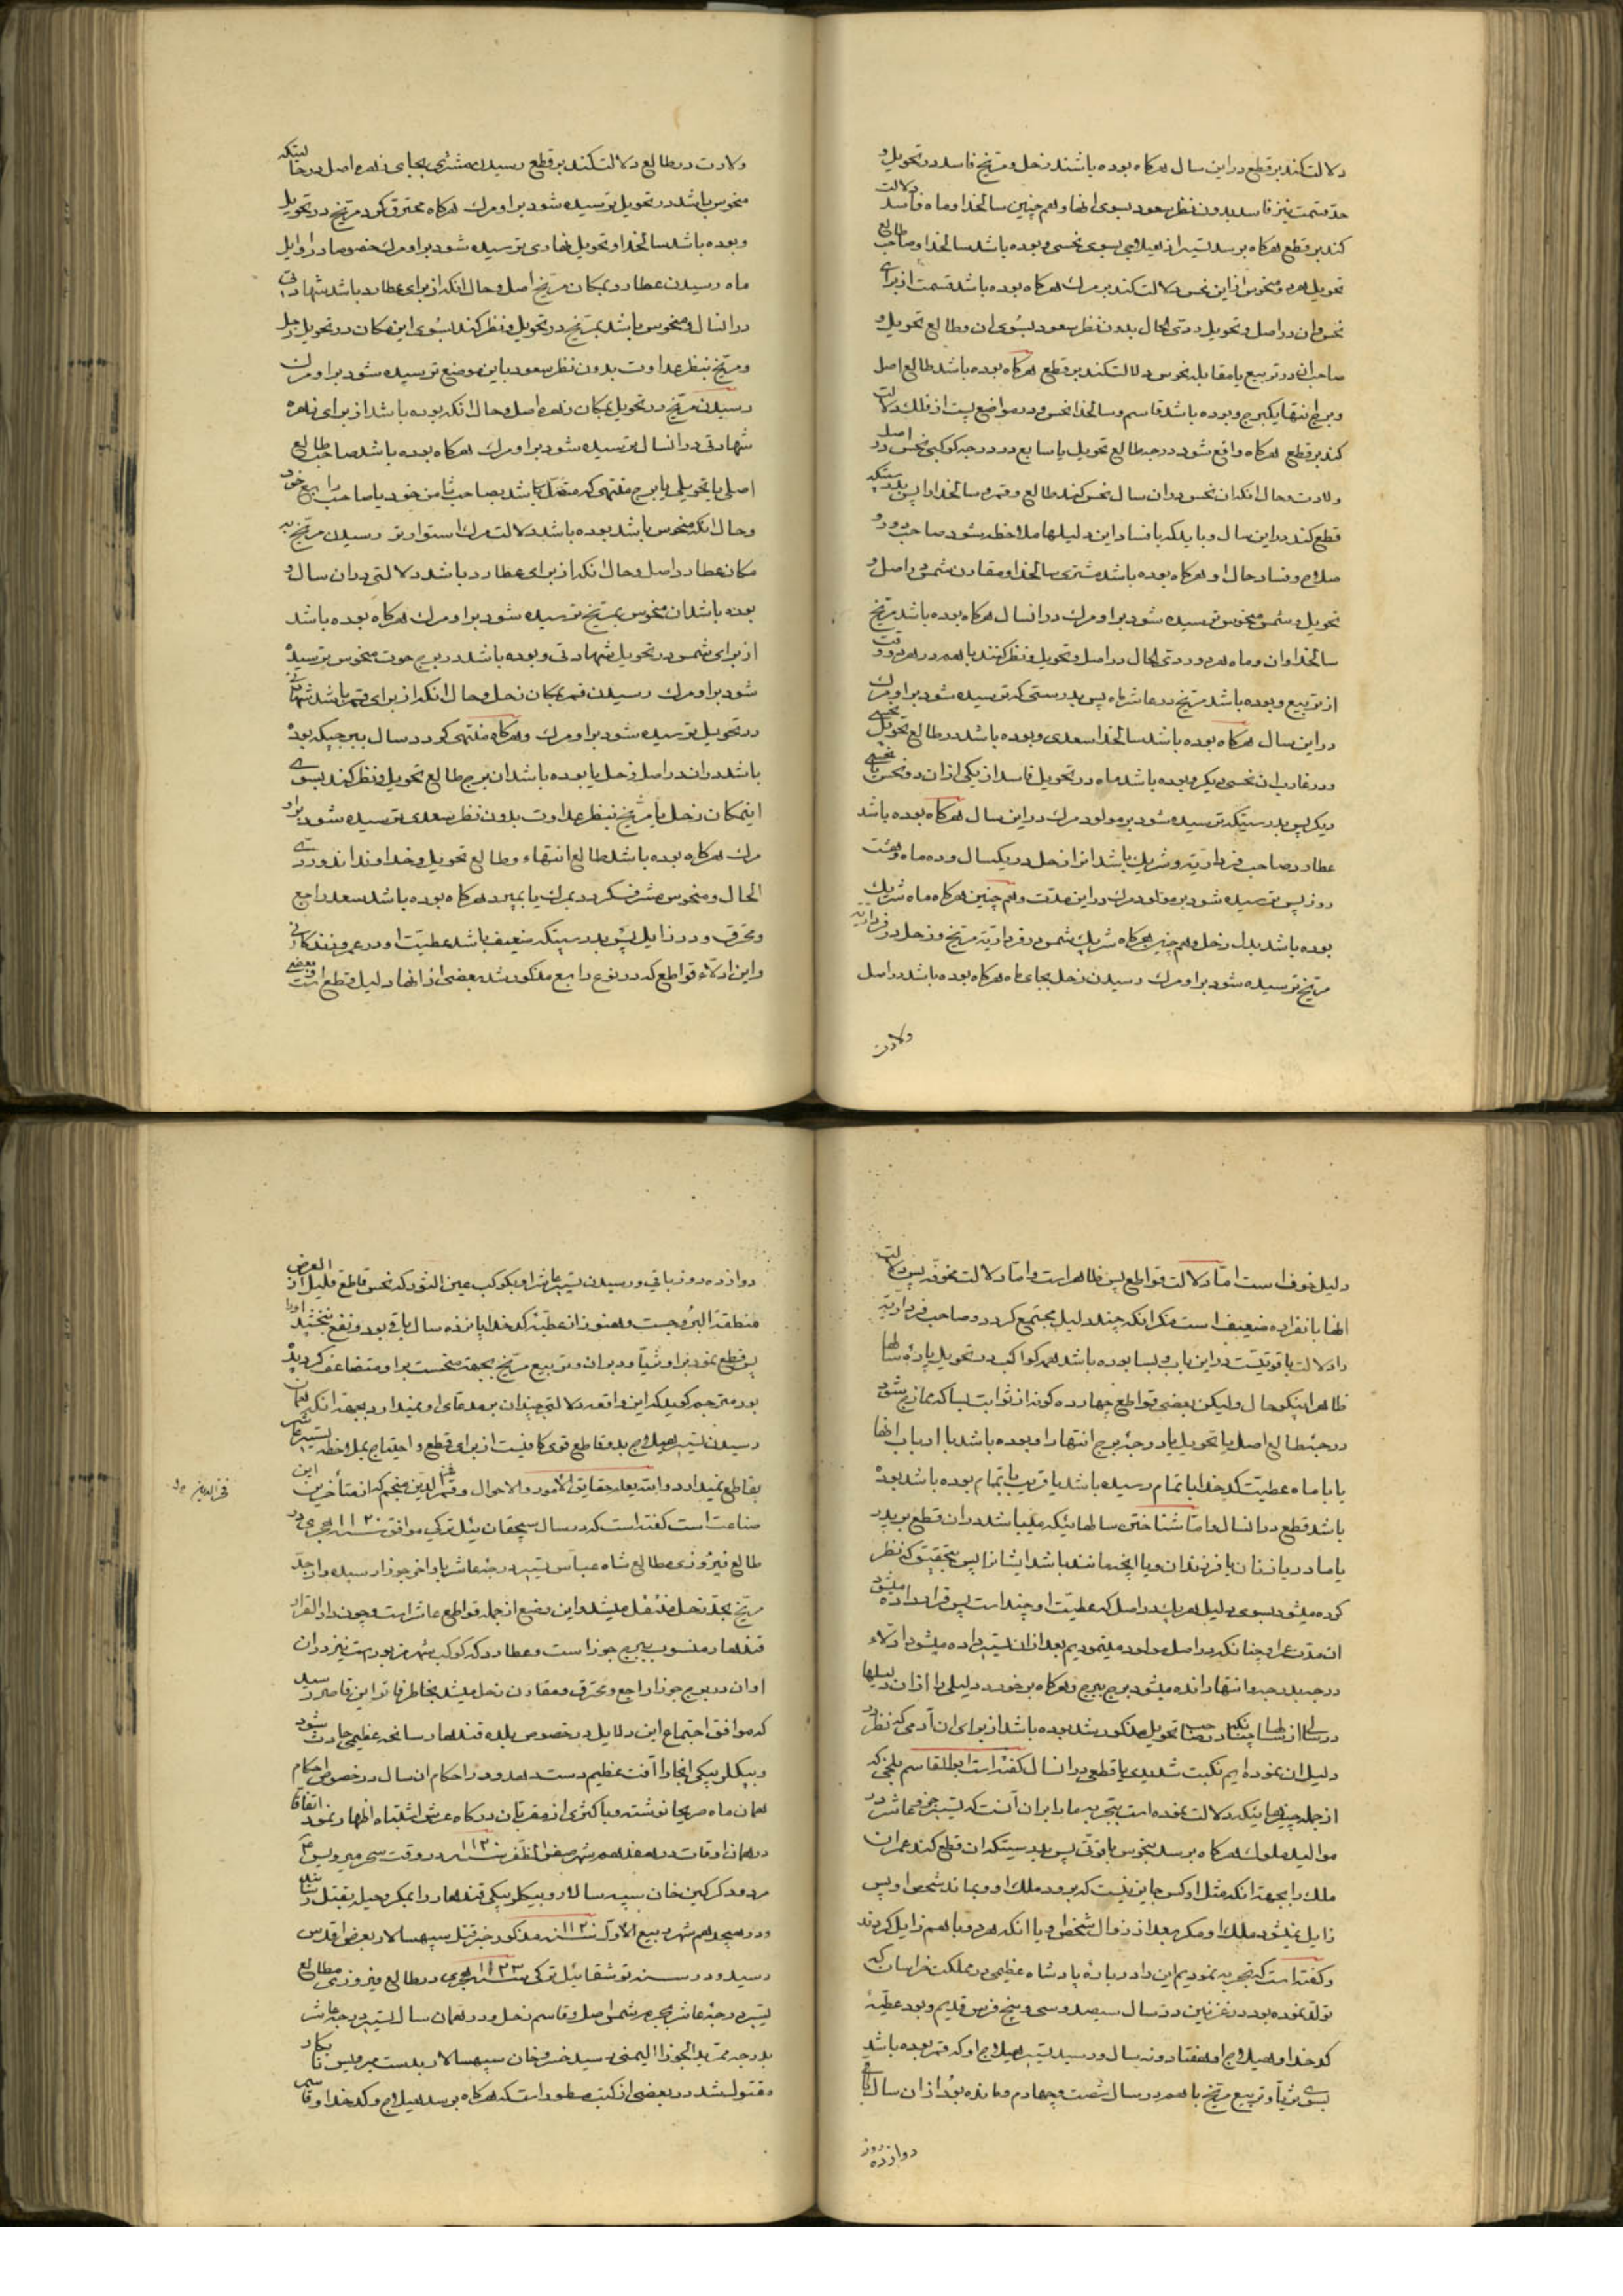 دلالت کند بر قطع در این سال هرکاه بوده باشند زحل و مریخ فاسد در تحویل و
حد قسمت نیز فاسد بدون نظر سعود بسوی انها و هم چنین سالخدا و ماه فاسد دلالت
کند بر قطع هرکاه برسد تسییر از هیلاجی بسوی نحسی و بوده باشد سالخدا و صاحب طالع
تحویل هردو منحوس از این نحس دلالت کند بر مرک هرکاه بوده باشد قسمت از برای
نحس و ان در اصل و تحویل ردی الحال بدون نظر سعود بسوی ان و طالع تحویل و
صاحب ان در تربیع یا مقابله نحوس دلالت کند بر قطع هرکاه بوده باشد طالع اصل
و برج انتها یکبرج و بوده باشد قاسم و سالخدا نحس و در مواضع پست از فلک دلالت
کند بر قطع هرکاه واقع شود درجه طالع تحویل یا سابع در درجه کوکبی نحس در اصل
ولادت و حال انکه ان نحس در ان سال نحس کند طالع و قمر و سالخدا را پس بدرستیکه
قطع کند در این سال و باید که با فساد این دلیلها ملاحظه شود صاحب دور و
صلاح و فساد حال او هرکاه بوده باشد مشتری سالخدا و مقارن شمس در اصل و
تحویل و شمس منحوس ترسیده شود بر او مرک در انسال هرکاه بوده باشد مریخ
سالخدا و ان و ماه هردو ردی الحال در اصل و تحویل و نظر کنند با هم در هر دو وقت
از تربیع و بوده باشد مریخ در عاشر ماه پس بدرستی که ترسیده شود بر او مرک
در این سال هرکاه بوده باشد سالخدا سعدی و بوده باشد در طالع تحویل نحسی
و در غارب ان نحسی دیکر و بوده باشد ماه در تحویل فاسد از یکی از ان دو نحس یا نحسی
دیکر پس بدرستیکه ترسیده شود بر مولود مرک در این سال هرکاه بوده باشد
عطارد صاحب فرداریه و شریک باشد انرا زحل در یکسال و ده ماه و هشت
روز پس ترسیده شود بر مولود مرک در این مدت و هم چنین هرکاه ماه شریک
بوده باشد بدل زحل و هم چنین هرکاه شریک شمس در فرداریه مریخ و زحل در فرداریه
مریخ ترسیده شود بر او مرک رسیدن زحل بجای ماه هرکاه بوده باشد در اصل
ولادت
ولادت در طالع دلالت کند بر قطع رسیدن مشتری بجای زهره اصل در حالیتکه
منحوس باشد در تحویل ترسیده شود بر او مرک هرکاه محترق کردد مریخ در تحویل
و بوده باشد سالخدا و تحویل نهاری ترسیده شود بر او مرک خصوصا در اوایل
ماه رسیدن عطارد بمکان مریخ اصل و حال انکه از برای عطارد باشد شهادتی
در انسال و منحوس باشد بمریخ در تحویل و نظر کند بسوی این مکان در تحویل زحل
و مریخ بنظر عداوت بدون نظر سعود باین موضع ترسیده شود بر او مرک
رسیدن مریخ در تحویل بمکان زهره اصل و حال انکه بوده باشد از برای زهره
شهادتی در انسال ترسیده شود بر او مرک هرکاه بوده باشد صاحب طالع
اصلی یا تحویلی یا برج منتهی که متصل باشد بصاحب ثامن خود یا صاحب رابع خود
و حال انکه منحوس باشد بوده باشد دلالت مرک استوارتر رسیدن مریخ به
مکان عطارد اصل و حال انکه از برای عطارد باشد دلالتی در ان سال و
بوده باشد ان منحوس بمریخ ترسیده شود بر او مرک هرکاه بوده باشد
از برای شمس در تحویل شهادتی و بوده باشد در برج حوت منحوس ترسیده
شود بر او مرک رسیدن قمر بمکان زحل و حال انکه از برای قمر باشد شهادتی
در تحویل ترسیده شود بر او مرک و هرکاه منتهی کردد سال ببرجیکه بوده
باشد در ان در اصل زحل یا بوده باشد ان برج طالع تحویل و نظر کند بسوی
اینمکان زحل یا مریخ بنظر عداوت بدون نظر سعدی ترسیده شود بر او
مرک هرکاه بوده باشد طالع انتهاء و طالع تحویل و خداوندان دو ردی
الحال و منحوس مشرف کردد بمرک یا بمیرد هرکاه بوده باشد سعد راجع
و محترق و در زایل پس بدرستیکه ضعیف باشد عطیت او در عمر و زندکانی
و این ادلاء قواطع که در نوع رابع مذکور شد بعضی از انها دلیل قطع است و بعضی
دلیل خوف است اما دلالت قواطع پس ظاهر است و اما دلالت مخوفه پس دلالت
انها بانفراده ضعیف است مکر انکه چند دلیل مجتمع کردد و صاحب فرداریه
را دلالت با قوتیست در این باب و بسا بوده باشد بعضی کواکب در تحویل پاره سالها
ظاهرا نیکو حال ولیکن بعضی قواطع چهارده کونه از ثوابت بسا که ممازج شود
درجه طالع اصل یا تحویل یا درجه برج انتها را و بوده باشد با ارباب انها
یا با ماه عطیت کدخدا با تمام رسیده باشد یا قریب باتمام بوده باشد بوده
باشد قطع در انسال و اما شناختن سالهائیکه میباشد در ان قطع بر پدر
یا مادر یا زنان یا فرزندان و یا انچه مانند باشد ایشانرا پس بتحقیق که نظر
کرده میشود بسوی دلیل هر یک در اصل که عطیت او چند است پس قرار داده میشود
ان مدت عمر او چنانکه در اصل مولود مینمودیم بعد از ان تسییر داده میشود ادلاء
درجه بدرجه و انتها رانده میشود برج ببرج و هرکاه برخورد دلیلی را از ان دلیلها
تحویل مذکور شد بوده باشد از برای ان آدمی که نظر در
دلیل ان نموده ایم نکبت شدیدی یا قطعی در انسال کفته است ابوالقاسم بلخی که
از جمله چیزهائیکه دلالت نموده است بتجربه ما را بر ان آنست که تسییر جزو عاشر در
موالید ملوک هرکاه برسد بنحوس با قوتی پس بدرستیکه ان قطع کند عمر ان
ملک را بجهة انکه مثل او کس جاین نیست که برود ملک او و بماند شخص او پس
زایل نمیشود ملک او مکر بعد از زوال شخص او یا انکه هردو با هم زایل کردند
و کفته است که تجربه نمودیم این را در باره پادشاه عظیمی در مملکت خراسان که
تولد نموده بود در غزنین در سال سیصد و سی و پنج فرس قدیم و بود عطیه
کدخدا و هیلاج او هفتاد و نه سال و رسید تسییر هیلاج او که قمر بوده باشد
بسوی ثریا و تربیع مریخ با هم در سال شصت و چهارم و مانده بود از ان سال باقی
دوازده روز
دوازده روز باقی و رسیدن تسییر عاشر او بکوکب عین الثور که نحس قاطع قلیل العرض از
منطقة البروجست و هنوز از عطیه کدخدا پانزده سال باقی بود و نفع نبخشید او را
پس قطع نمود بر او ثریا و دبران و تربیع مریخ بجهة منحست بر او متضاعف کردیده
بود مترجم کوید که این واقعه دلالتی چندان بر مدعای او نمیدارد بجهة انکه همان
رسیدن تسییر هیلاج بدو قاطع قوی کافیست از برای قطع و احتیاج بملاحظه تسییر عاشر
بقاطع نمیدارد و الله یعلم حقایق الامور والاحوال و فخر الدین منجم که از متأخرین این
صناعت است کفته است که در سال سیچقان ئیل ترکی موافق سنه ۱۱۲۰ هجری در
طالع فیروزی مطالع شاه عباس تسییر درجه عاشر باواخر جوزا رسیده و از حد
مریخ بحد زحل منتقل میشد و این وضع از جمله قواطع عاشر است و چون دار القرار
قندهار منسوب ببرج جوزا است و عطارد که کوکب شهر مزبور است نیز در ان
اوان در برج جوزا راجع و محترق و مقارن زحل میشد بخاطر فاتر این قاصر رسید
که موافق اجتماع این دلایل در خصوص بلده قندهار سانحه عظیمی حادث شود
و بیکلر بیکی انجا را آفت عظیم دست دهد و در احکام ان سال در خصوص احکام
همان ماه صریحا نوشته و با کثری از مقربان درکاه عرش اشتباه اظهار نمود اتفاقا
در همان اوقات در هفدهم شهر صفر المظفر سنه ۱۱۲۰ در وقت سحر میرویس
مردود کرکین خان سپه سالار و بیکلر بیکی قندهار را بمکر و حیله بقتل رسانید
و در هیجدهم شهر ربیع الاول سنه ۱۱۲۰ مذکور خبر قتل سپهسالار بعرض اقدس
رسید و در سنه توشقان ئیل ترکی سنه ۱۱۲۳ هجری در طالع فیروزی مطالع
تسییر درجه عاشر بجرم شمس اصل و قاسم زحل و در همان سال تسییر درجه عاشر
بدرجه ممر ید الجوزا الیمنی رسید خسرو خان سپهسالار بدست میرویس نابکار
مقتول شد در بعضی از کتب مسطور است که هرکاه برسد هیلاج و کدخدا و قاسم
فخر الدین